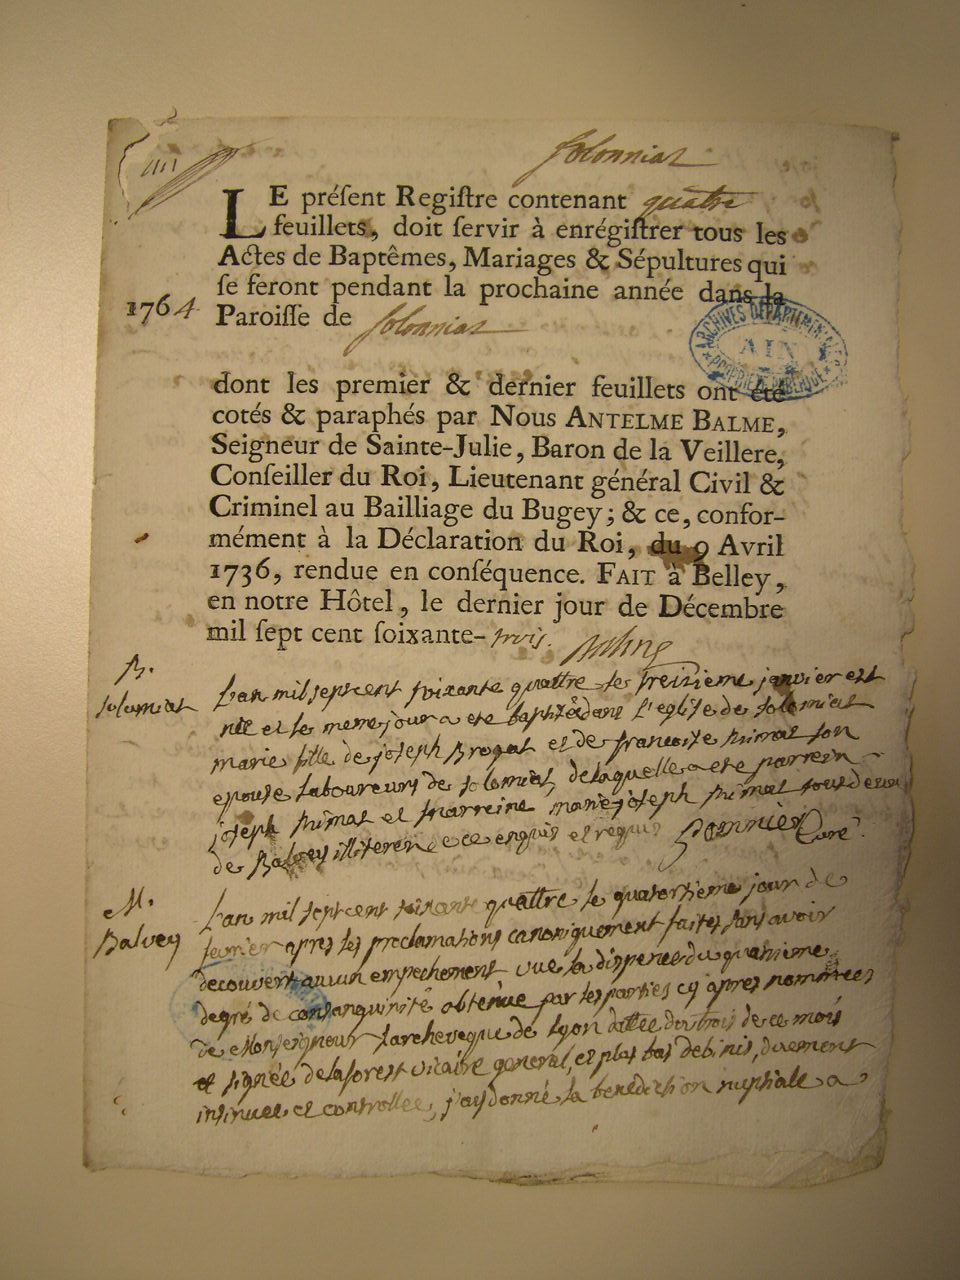 Solonniat
LE préſent Regiſtre contenant quatre
feuillets, doit ſervir à enrégiſtrer tous les
Actes de Baptêmes, Mariages & Sépultures qui
ſe feront pendant la prochaine année dans la
1764 Paroiſſe de Solonniat
ARCHIVES DÉPARTEMENTALES
AIN
dont les premier & dernier feuillets ont été
cotés & paraphés par Nous ANTELME BALME,
Seigneur de Sainte-Julie, Baron de la Veillere,
Conſeiller du Roi, Lieutenant général Civil &
Criminel au Bailliage du Bugey; & ce, confor-
mément à la Déclaration du Roi, du 9 Avril
1736, rendue en conſéquence. FAIT à Belley,
en notre Hôtel, le dernier jour de Décembre
mil ſept cent ſoixante-trois.
B.
Solomiat
L'an mil sept cent soixante quattre le treizieme janvier est
née et le meme jour a eté baptisée dans l'eglise de solomiat
marie fille de joseph Brogat et de francoise primat son
epouse laboureurs de solomiat, de laquelle a eté parrein
joseph primat et marreine marie joseph primat tous deux
de Balvey illiteres de ce enquis et requis Curé
M.
Balvey
L'an mil sept cent soixante quattre le quatorzieme jour de
fevrier apres les proclamations canoniquement faites sans avoir
decouvert aucun empechement vue la dispense du quatrieme
degré de consanguinité obtenue par les parties cy apres nommées
de Monseigneur l'archeveque de Lyon dattée du trois de ce mois
et signée delaforest vicaire general, et plus bas debinis, duement
insinuée et controllée, j'ay donné la benediction nuptiale a